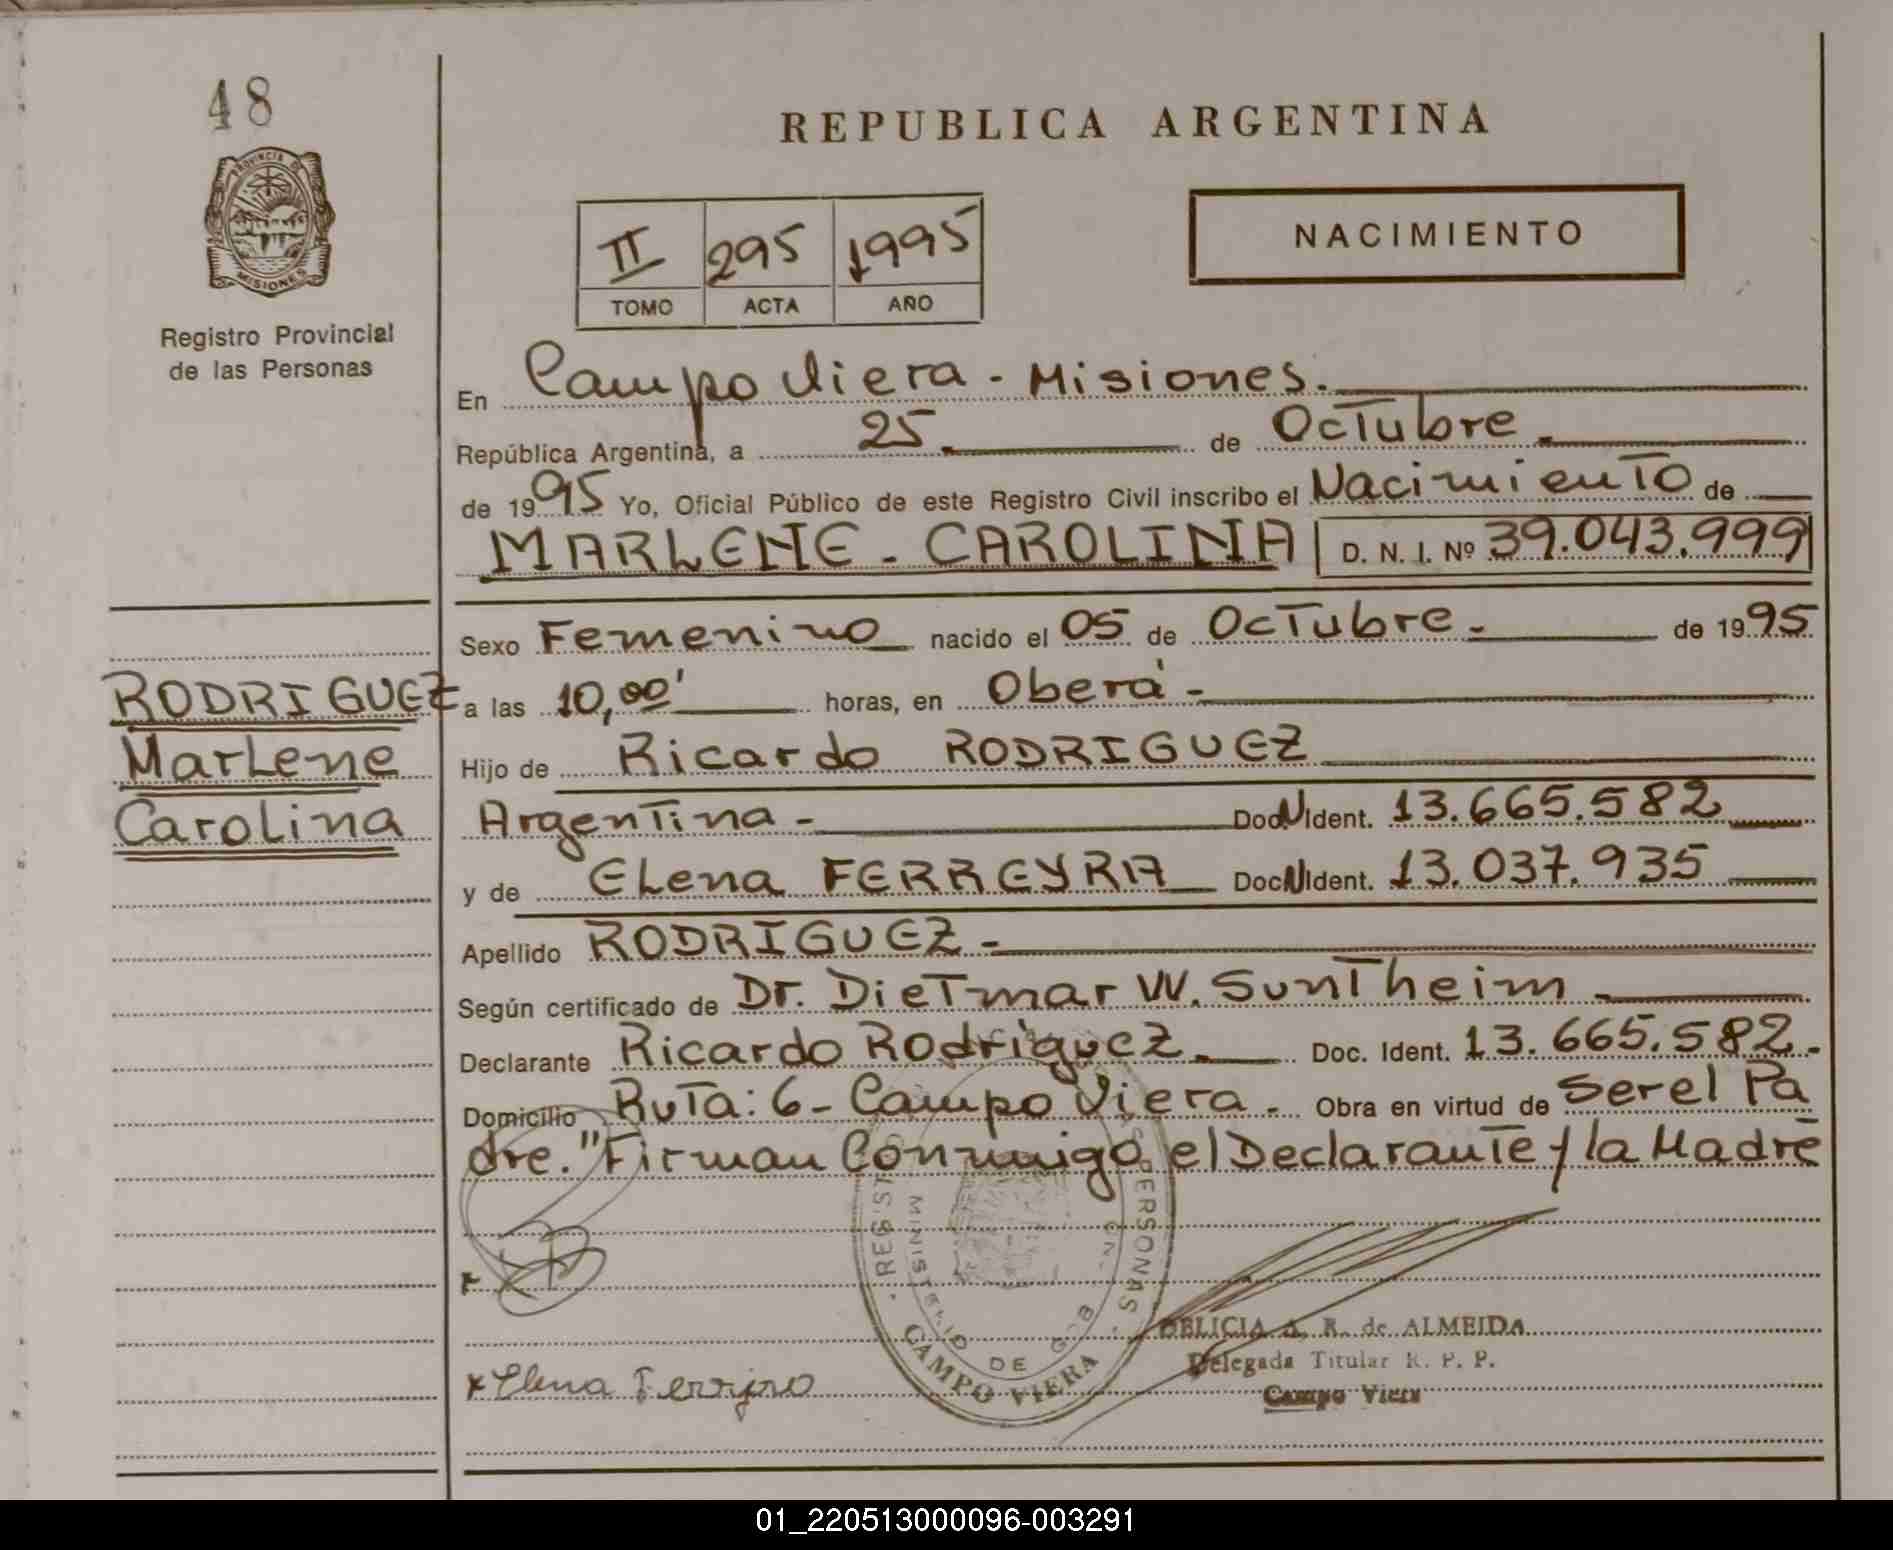 48
PROVINCIA DE
MISIONES
Registro Provincial
de las Personas
REPUBLICA ARGENTINA
II 295 1995
TOMO ACTA AÑO
NACIMIENTO
En Campo Viera - Misiones.
República Argentina, a 25 de Octubre
de 1995 Yo, Oficial Público de este Registro Civil inscribo el Nacimiento de
MARLENE - CAROLINA D. N. I. Nº 39.043.999
Sexo Femenino nacido el 05 de Octubre. de 1995
RODRIGUEZ
Marlene
Carolina
a las 10,00' horas, en Oberá -
Hijo de Ricardo RODRIGUEZ
Argentina - Doc. N Ident. 13.665.582
y de Elena FERREYRA Doc. N Ident. 13.037.935
Apellido RODRIGUEZ -
Según certificado de Dr. Dietmar W. Suntheim
Declarante Ricardo Rodriguez. Doc. Ident. 13.665.582.
Domicilio Ruta: 6 - Campo Viera - Obra en virtud de Ser el Pa
dre. "Firman Conmigo el Declarante y la Madre
MINISTERIO DE GOB
PERSONAS
CAMPO VIERA
DELICIA A. R. de ALMEIDA
Delegada Titular R. P. P.
Campo Viera
x Elena
01_220513000096-003291